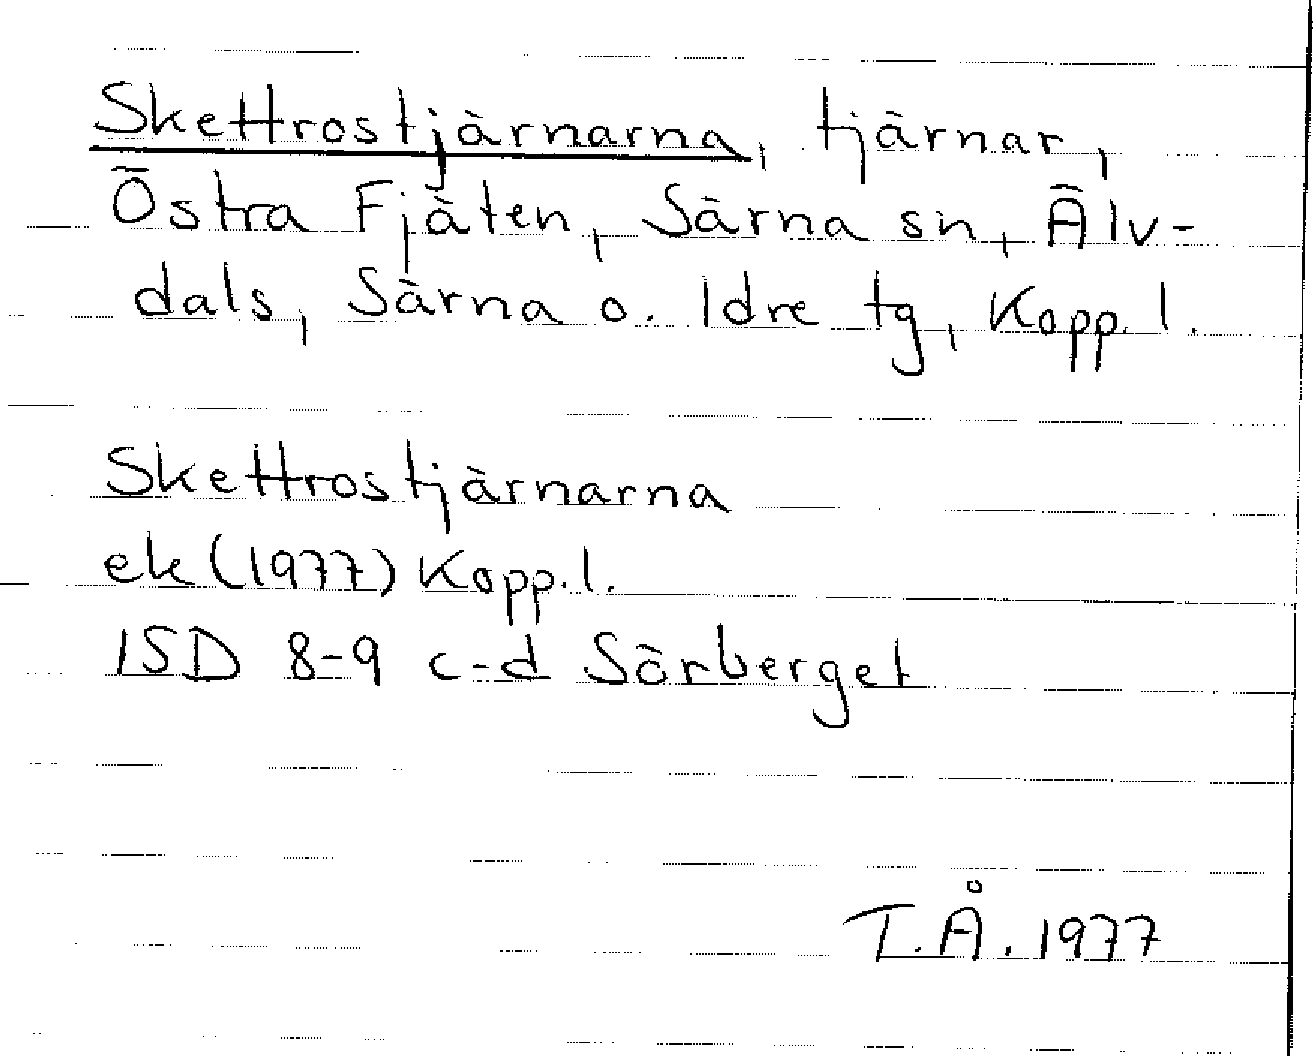 Skettrostjärnarna, tjärnar,
Östra Fjäten, Särna sn, Älv-
dals, Särna o. Idre tg, Kopp. l.
Skettrostjärnarna
ek (1977) Kopp. l.
15D 8-9 c-d Sörberget
T.Å. 1977